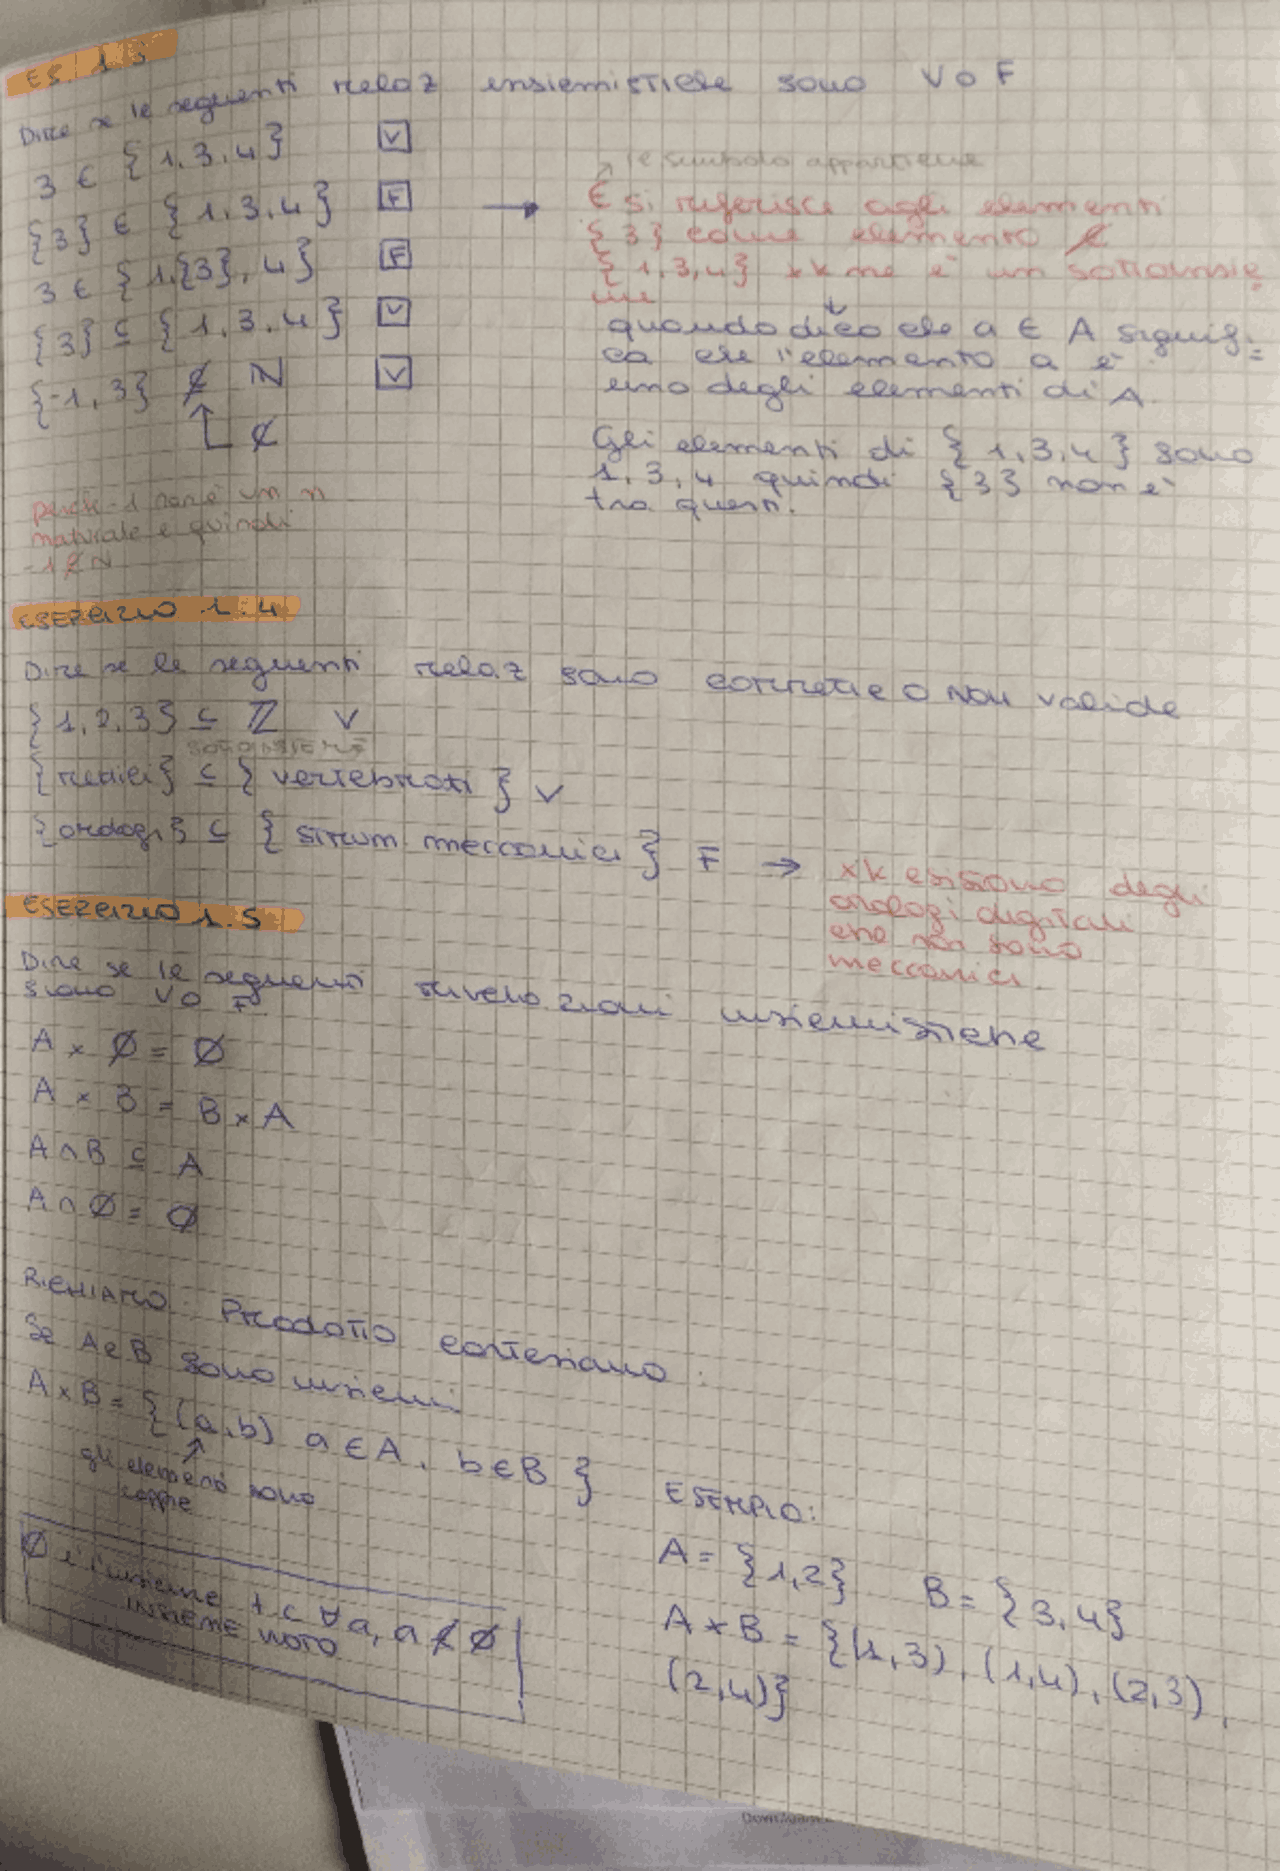 ES. 1.3
Dire se le seguenti relaz insiemistiche sono V o F
3 ∈ {1,3,4} V
{3} ∈ {1,3,4} F →
3 ∈ {1,{3},4} F
{3} ⊆ {1,3,4} V
{-1,3} ⊄ ℕ V
perché -1 non è un n
naturale e quindi
-1 ∉ ℕ
le simbolo appartiene
∈ si riferisce agli elementi
{3} come elemento ∉
{1,3,4} xk ne è un sottoinsie
me
quando dico che a ∈ A signifi=
ca che l'elemento a è
uno degli elementi di A.
Gli elementi di {1,3,4} sono
1, 3, 4 quindi {3} non è
tra questi.
ESERCIZIO 1.4
Dire se le seguenti relaz sono corrette o non valide
{1,2,3} ⊆ ℤ V
SOTTOINSIEME
{radici} ⊆ {vertebrati} V
{orologi} ⊆ {strum meccanici} F → xk esistono degli
orologi digitali
che non sono
meccanici.
ESERCIZIO 1.5
Dire se le seguenti relazioni insiemistiche
siano V o F
A × ∅ = ∅
A × B = B × A
A ∩ B ⊆ A
A ∩ ∅ = ∅
RICHIAMO: Prodotto cartesiano:
Se A e B sono insiemi
A × B = {(a,b) a ∈ A, b ∈ B}
gli elementi sono
coppie
∅ è l'insieme t.c ∀a, a ∉ ∅
INSIEME VUOTO
ESEMPIO:
A = {1,2} B = {3,4}
A × B = {(1,3), (1,4), (2,3),
(2,4)}